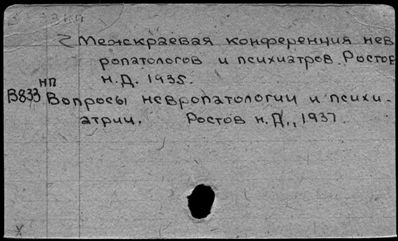 2 Межкраевая конференция нев
ропатологов и психиатров. Ростов
н.Д. 1935.
нп
В833 Вопросы невропатологии и психи-
атрии. Ростов н.Д., 1937.